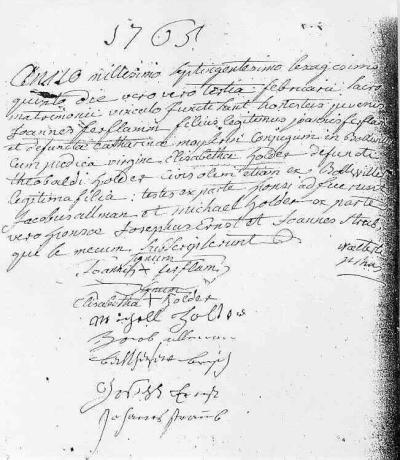 1765
Anno millesimo septingentesimo sexagesimo
quinto die vero vero tertia februarii sacro
matrimonii vinculo juncti sunt honestus juvenis
Joannes fesflamm filius legitimus joannis fesflam
et defunctae Catharinae conjugum in Bollwiller
cum pudica virgine Elisabetha Holder defuncti
theobaldi Holder civis olim etiam ex Bollwiller
legitima filia: testes ex parte sponsi adfuerunt
jacobus allman et Michael Holder ex parte
vero sponsae Josephus Ernst et Joannes Straub,
qui me mecum subscripserunt
signum
Joannis + fesflam
signum
Elisabetha + Holder
Michell Holder
Jacob allman
Joseph Ernst
Johannes straub